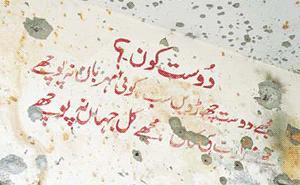 دُوست کون؟
مجھے دوست چھوڑ دیں سب کوئی مہرباں نہ پوچھے
مجھے کل جہاں نہ پوچھے